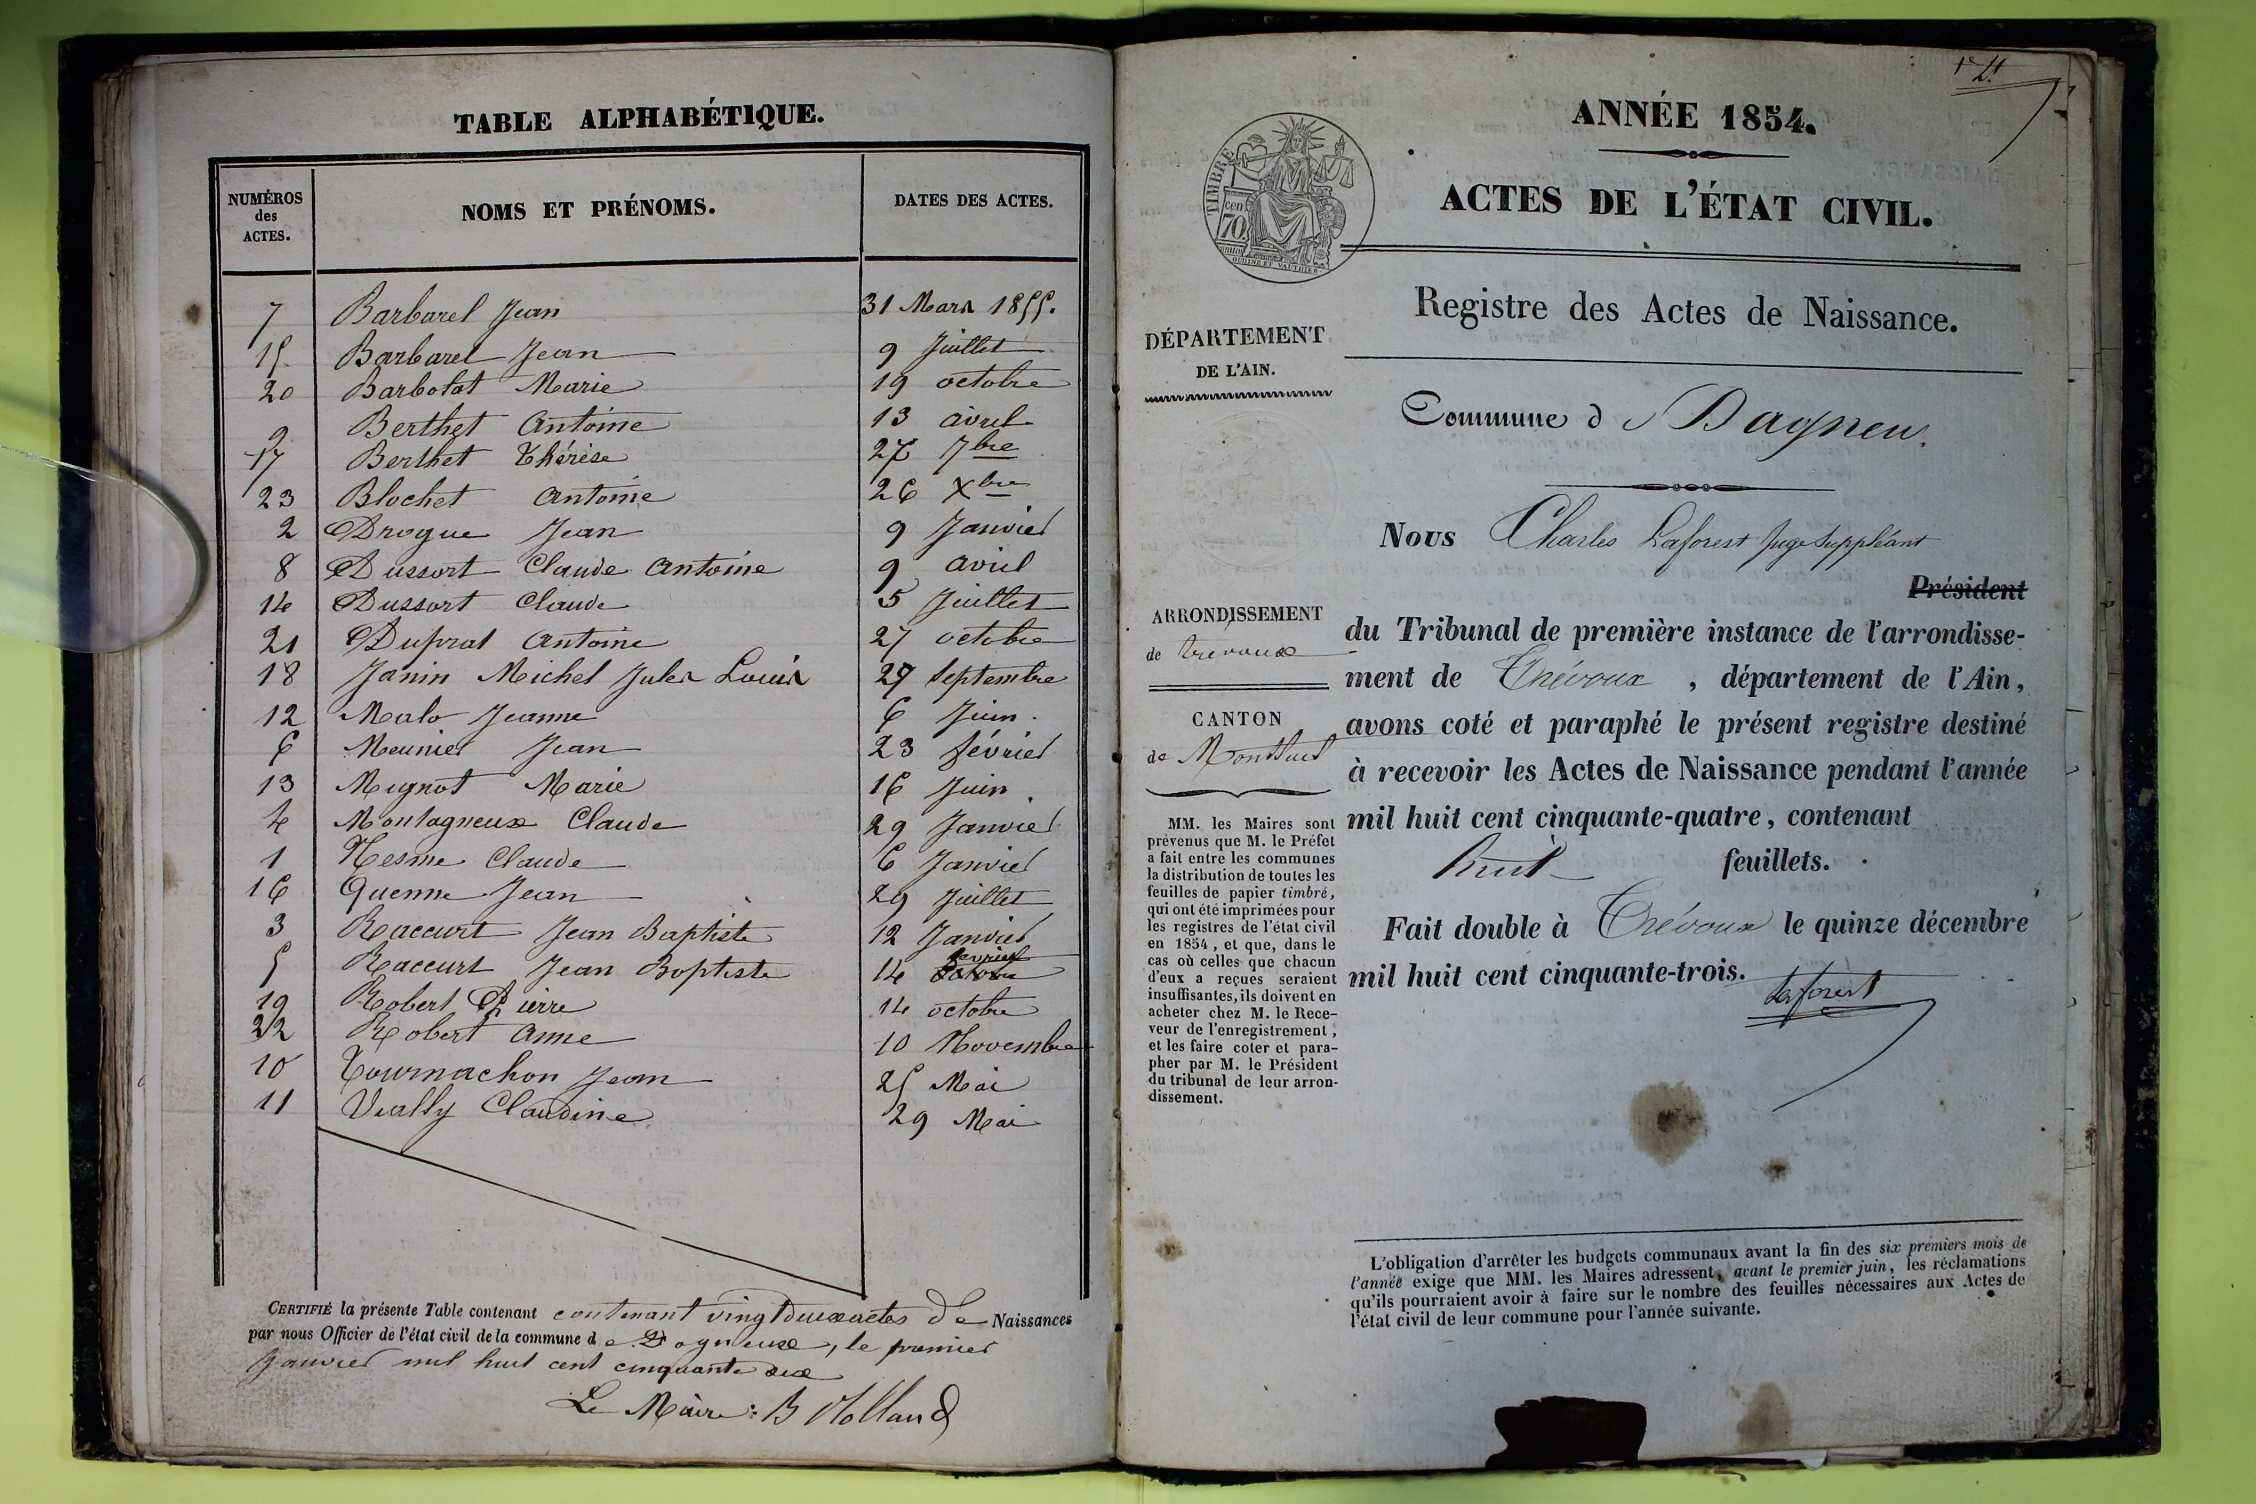 TABLE ALPHABÉTIQUE.
NUMÉROS des ACTES. NOMS ET PRÉNOMS. DATES DES ACTES.
7 Barbarel Jean 31 Mars 1855.
15 Barbaret Jean 9 Juillet
20 Barbotat Marie 19 octobre
9 Berthet Antoine 13 avril
17 Berthet Thérèse 27 7bre
23 Blochet Antoine 26 Xbre
2 Drogue Jean 9 Janvier
8 Dussort Claude Antoine 9 avril
14 Dussort Claude 5 Juillet
21 Duprat Antoine 27 octobre
18 Janin Michel Jules Louis 29 Septembre
12 Malo Jeanne 6 Juin.
6 Meunier Jean 23 février
13 Mignot Marie 16 Juin.
4 Montagneux Claude 29 Janvier
1 Nesme Claude 6 Janvier
16 Quenne Jean 29 Juillet
3 Raccurt Jean Baptiste 12 Janvier
5 Raccurt Jean Baptiste 14 février
19 Robert Pierre 14 octobre
22 Robert Anne 10 Novembre
10 Tournachon Jean 25 Mai
11 Vially Claudine 29 Mai
CERTIFIÉ la présente Table contenant contenant vingt deux actes de Naissances
par nous Officier de l'état civil de la commune de Dagneux, le premier
Janvier mil huit cent cinquante six
Le Maire: B Holland
ANNÉE 1854.
ACTES DE L'ÉTAT CIVIL.
TIMBRE
70
cen
OUDINE ET VAUTHIER
Registre des Actes de Naissance.
DÉPARTEMENT
DE L'AIN.
ARRONDISSEMENT
de trevoux
CANTON
de Montluel
MM. les Maires sont
prévenus que M. le Préfet
a fait entre les communes
la distribution de toutes les
feuilles de papier timbré,
qui ont été imprimées pour
les registres de l'état civil
en 1854, et que, dans le
cas où celles que chacun
d'eux a reçues seraient
insuffisantes, ils doivent en
acheter chez M. le Rece-
veur de l'enregistrement,
et les faire coter et para-
pher par M. le Président
du tribunal de leur arron-
dissement.
Commune d Dagneu.
Nous Charles Laforest Juge Suppléant
Président
du Tribunal de première instance de l'arrondisse-
ment de Trévoux, département de l'Ain,
avons coté et paraphé le présent registre destiné
à recevoir les Actes de Naissance pendant l'année
mil huit cent cinquante-quatre, contenant
huit feuillets.
Fait double à Trévoux le quinze décembre
mil huit cent cinquante-trois.
Laforest
L'obligation d'arrêter les budgets communaux avant la fin des six premiers mois de
l'année exige que MM. les Maires adressent, avant le premier juin, les réclamations
qu'ils pourraient avoir à faire sur le nombre des feuilles nécessaires aux Actes de
l'état civil de leur commune pour l'année suivante.